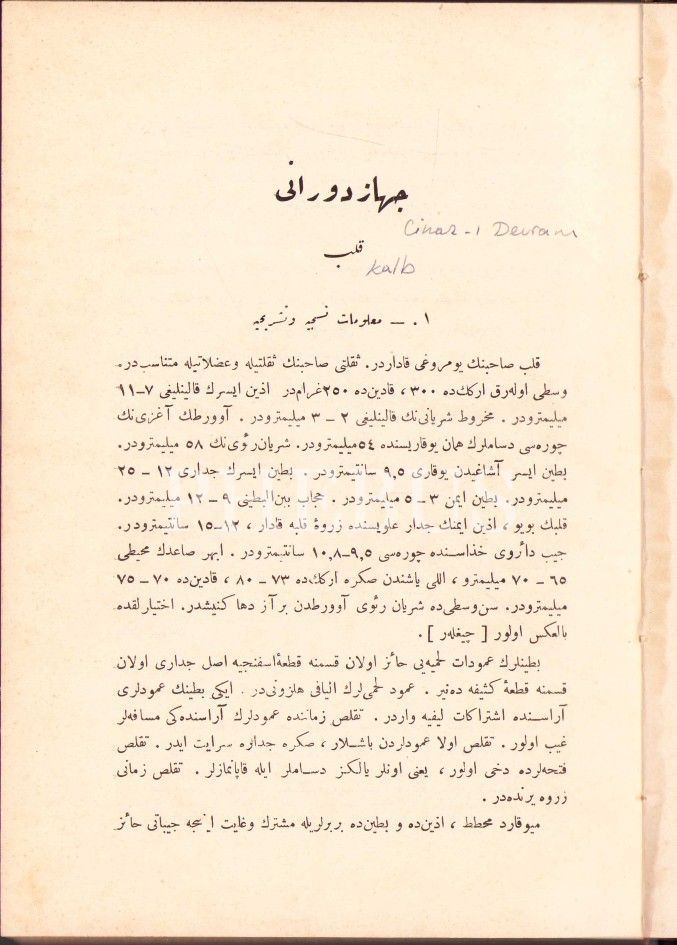 جهاز دورانی
Cihaz-ı Devrani
قلب
Kalb
۱. — معلومات نسجیه و تشریحیه
قلب صاحبنك يومروغی قاداردر. ثقلتی صاحبنك ثقلتيله وعضلاتيله متناسبدر.
وسطی اوله‌رق ارككده ۳۰۰ ، قادين‌ده ۲۵۰ غرام‌در اذين ايسرك قالينليغی ۷–۱۱
ميليمترودر . مخروط شريانی‌نك قالينليغی ۲ – ۳ ميليمترودر . آوورطك آغزی‌نك
چوره‌سی دساملرك همان يوقاريسنده ۵٤ ميليمترودر. شريان رئوی‌نك ۵۸ ميليمترودر.
بطين ايسر آشاغيدن يوقاری ۹,۵ سانتيمترودر . بطين ايسرك جداری ۱۲ – ۲۵
ميليمترودر. بطين ايمن ۳ – ۵ ميليمترودر . حجاب بين‌البطينی ۹ – ۱۲ ميليمترودر.
قلبك بويو ، اذين ايمنك جدار علويسنده زروهٔ قلبه قادار ، ۱۲–۱۵ سانتيمترودر.
جيب دائروی خذاسنده چوره‌سی ۹,۵–۱۰,۸ سانتيمترودر . ابهر صاعدك محيطی
۶۵ – ۷۰ ميليمترو ، اللی ياشندن صكره ارككده ۷۳ – ۸۰ ، قادين‌ده ۷۰ – ۷۵
ميليمترودر. سن وسطی‌ده شريان رئوی آوورطدن بر آز دها كنيشدر. اختيارلقده
بالعكس اولور [ چيغله‌ر ] .
بطينلرك عمودات لحميه‌يی حائز اولان قسمنه قطعهٔ اسفنجيه اصل جداری اولان
قسمنه قطعهٔ كثيفه ده‌نير . عمود لحمی‌لرك اليافی حلزونی‌در . ايكی بطينك عمودلری
آراسنده اشتراكات ليفيه واردر . تقلص زماننده عمودلرك آراسنده‌كی مسافه‌لر
غيب اولور . تقلص اولا عمودلردن باشلار ، صكره جداره سرايت ايدر . تقلص
فتحه‌لرده دخی اولور ، يعنی اونلر يالكز دساملر ايله قاپانمازلر . تقلص زمانی
زروه يرنده‌در .
ميوقارد مخطط ، اذين‌ده و بطين‌ده بربرلريله مشترك وغايت اينجه جيباتی حائز